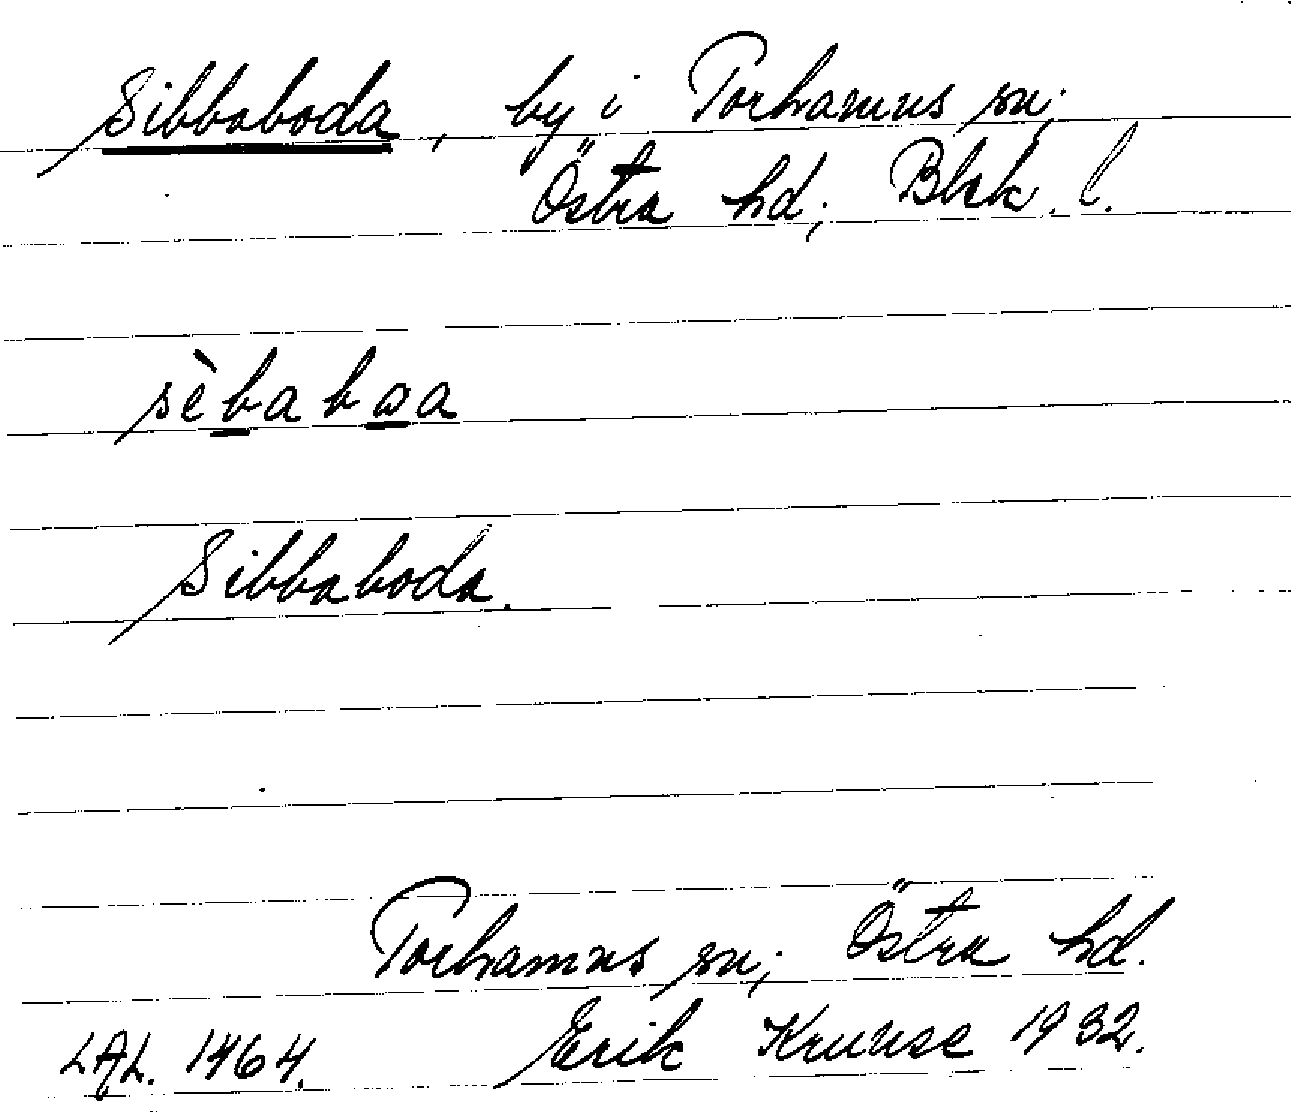 Sibbaboda, by i Torhamns sn;
Östra hd; Blek. l.
sèbabɷa
Sibbaboda.
Torhamns sn; Östra hd.
LAL. 1464. Erik Kruuse 1932.